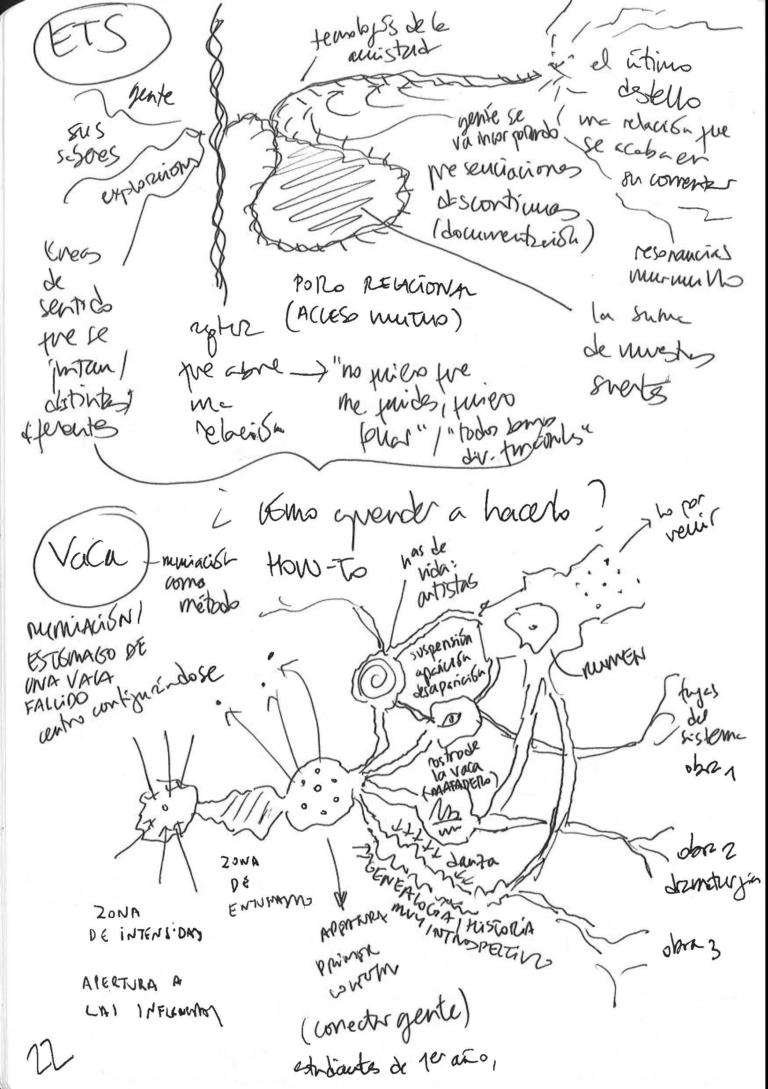 ETS
tecnologías de la
amistad
gente
sus
saberes
exploraciones
el útimo
destello
una relación que
se acaba en
su comentar
gente se
va incorporando
presenciaciones
discontinuas
(documentación)
resonancias
murmullo
líneas
de
sentido
que se
juntan/
distintas,
diferentes
PORO RELACIONAL
(ACCESO MUTUO)
que abre →
una
relación
"no quiero que
me cuides, quiero
follar" / "todos somos
div. funcionales"
la suma
de nuestras
suertes
¿Cómo aprender a hacerlo?
HOW-TO
VACA
rumiación
como
método
RUMIACIÓN/
ESTÓMAGO DE
UNA VACA
FALLIDO
centro configurándose
has de
vida:
artistas
lo por
venir
suspensión
aparición
desaparición
RUMEN
fugas
del
sistema
obra 1
rostro de
la vaca
(MATADERO)
danza
obra 2
dramaturgia
obra 3
GENEALOGÍA / HISTORIA
MUY INTROSPECTIVO
ZONA
DE INTENSIDAD
APERTURA A
LAS
ZONA
DE
APERTURA
PRIMER
(conectar gente)
estudiantes de 1er año,
22